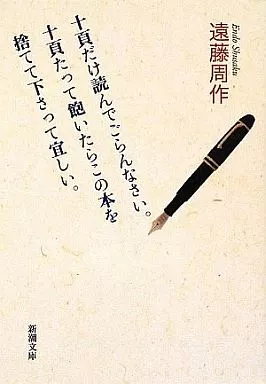 遠藤周作
Endo Shusaku
十頁だけ読んでごらんなさい。
十頁たって飽いたらこの本を
捨てて下さって宜しい。
新潮文庫